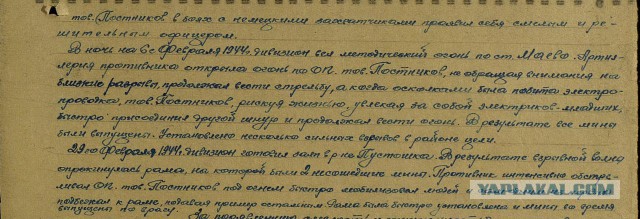 тов. Постников в боях с немецкими захватчиками проявил себя смелым и ре-
шительным офицером.
В ночь на 8е февраля 1944г. дивизион вел методический огонь по ст. Маево. Артил-
лерия противника открыла огонь по ОП. тов. Постников, не обращая внимания на
близкие разрывы, продолжал вести стрельбу, а когда осколками была побита электро-
проводка, тов. Постников, рискуя жизнью, увлекая за собой электриков-младших,
быстро присоединил другой шнур и продолжал вести огонь. В результате все мины
были выпущены. Установлено несколько сильных взрывов в районе цели.
29го февраля 1944г. дивизион готовил залп в р-не Пустошка. В результате взрывной волны
опрокинулась рама, на которой были 2 несошедшие мины. Противник интенсивно обстре-
ливал ОП. тов. Постников под огнем быстро мобилизовал людей
подбежал к раме, подавая пример остальным. Рама была быстро установлена и мины во время
выпущены по врагу.
YAPLAKAL.COM